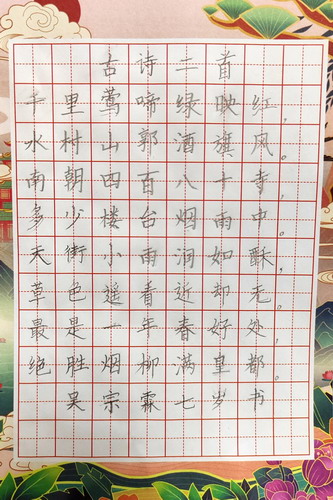 古诗二首
千里莺啼绿映红,
水村山郭酒旗风。
南朝四百八十寺,
多少楼台烟雨中。
天街小雨润如酥,
草色遥看近却无。
最是一年春好处,
绝胜烟柳满皇都。
吴宗霖七岁书